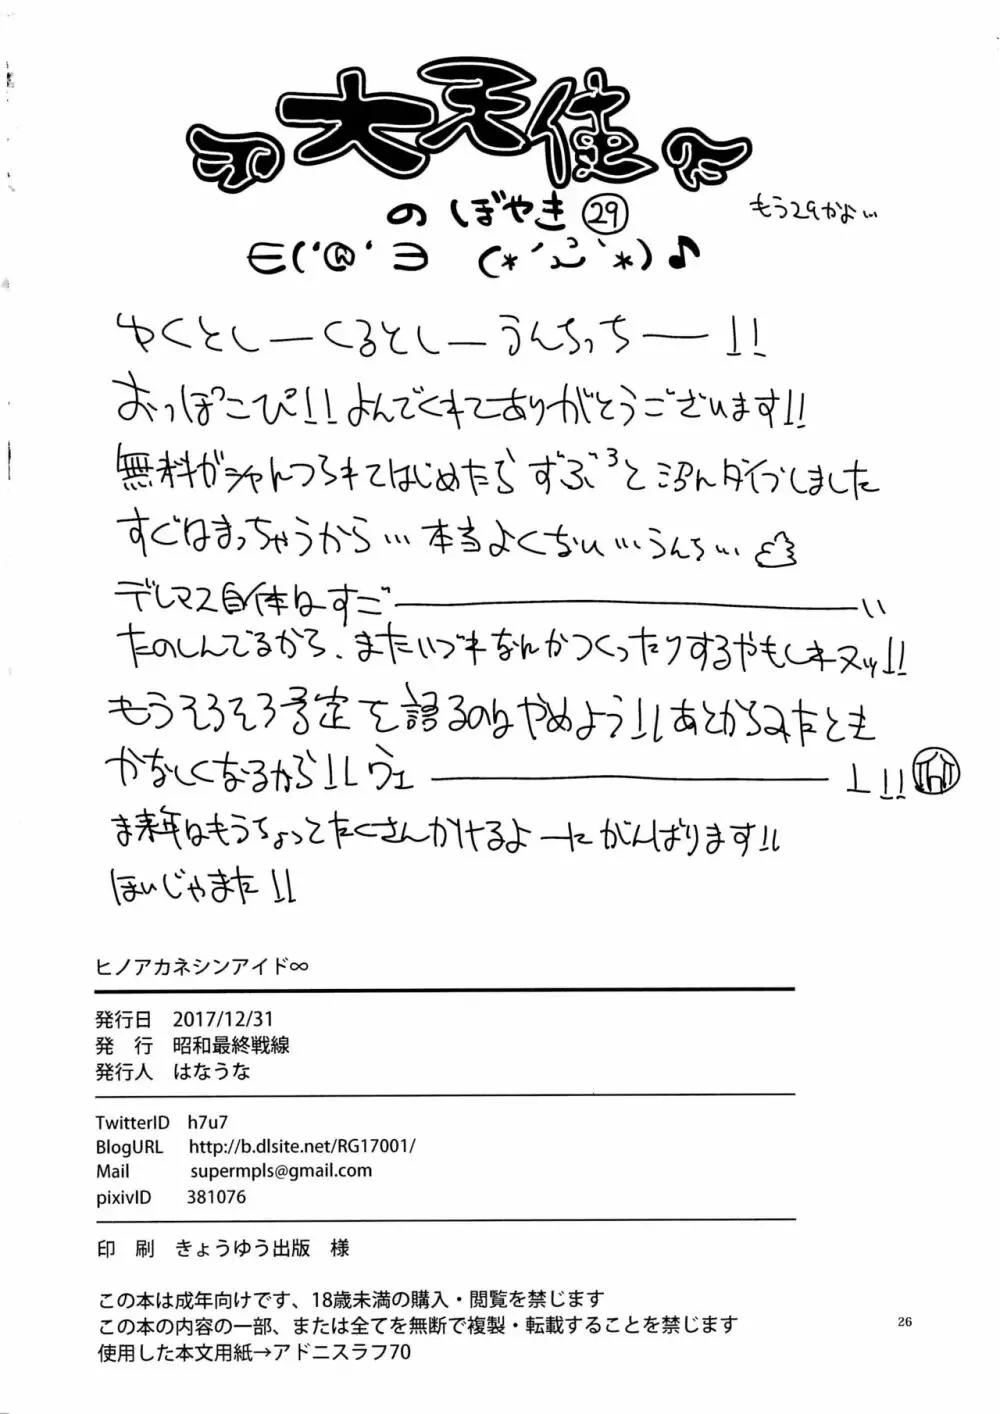 大天使
のぼやき㉙
もう29かよ…
∈('@'∋ (*´ω`*)♪
ゆくとしーくるとしーうんちっちー!!
おっぽこぴ!!よんでくれてありがとうございます!!
無料ガシャんつられてはじめたらずぶ³と沼んダイブしました
すぐはまっちゃうから…本当よくない…うんち…
デレマス自体はすごーい
たのしんでるから、またいづれなんかつくったりするやもしネヌッ!!
もうそろそろ予定を語るのはやめよう!!あとからみたとき
かなしくなるから!!ヴェー!!
ま来年はもうちょってたくさんかけるよーにがんばります!!
ほいじゃまた!!
ヒノアカネシンアイド∞
発行日 2017/12/31
発 行 昭和最終戦線
発行人 はなうな
TwitterID h7u7
BlogURL http://b.dlsite.net/RG17001/
Mail supermpls@gmail.com
pixivID 381076
印 刷 きょうゆう出版 様
この本は成年向けです、18歳未満の購入・閲覧を禁じます
この本の内容の一部、または全てを無断で複製・転載することを禁じます
使用した本文用紙→アドニスラフ70
26